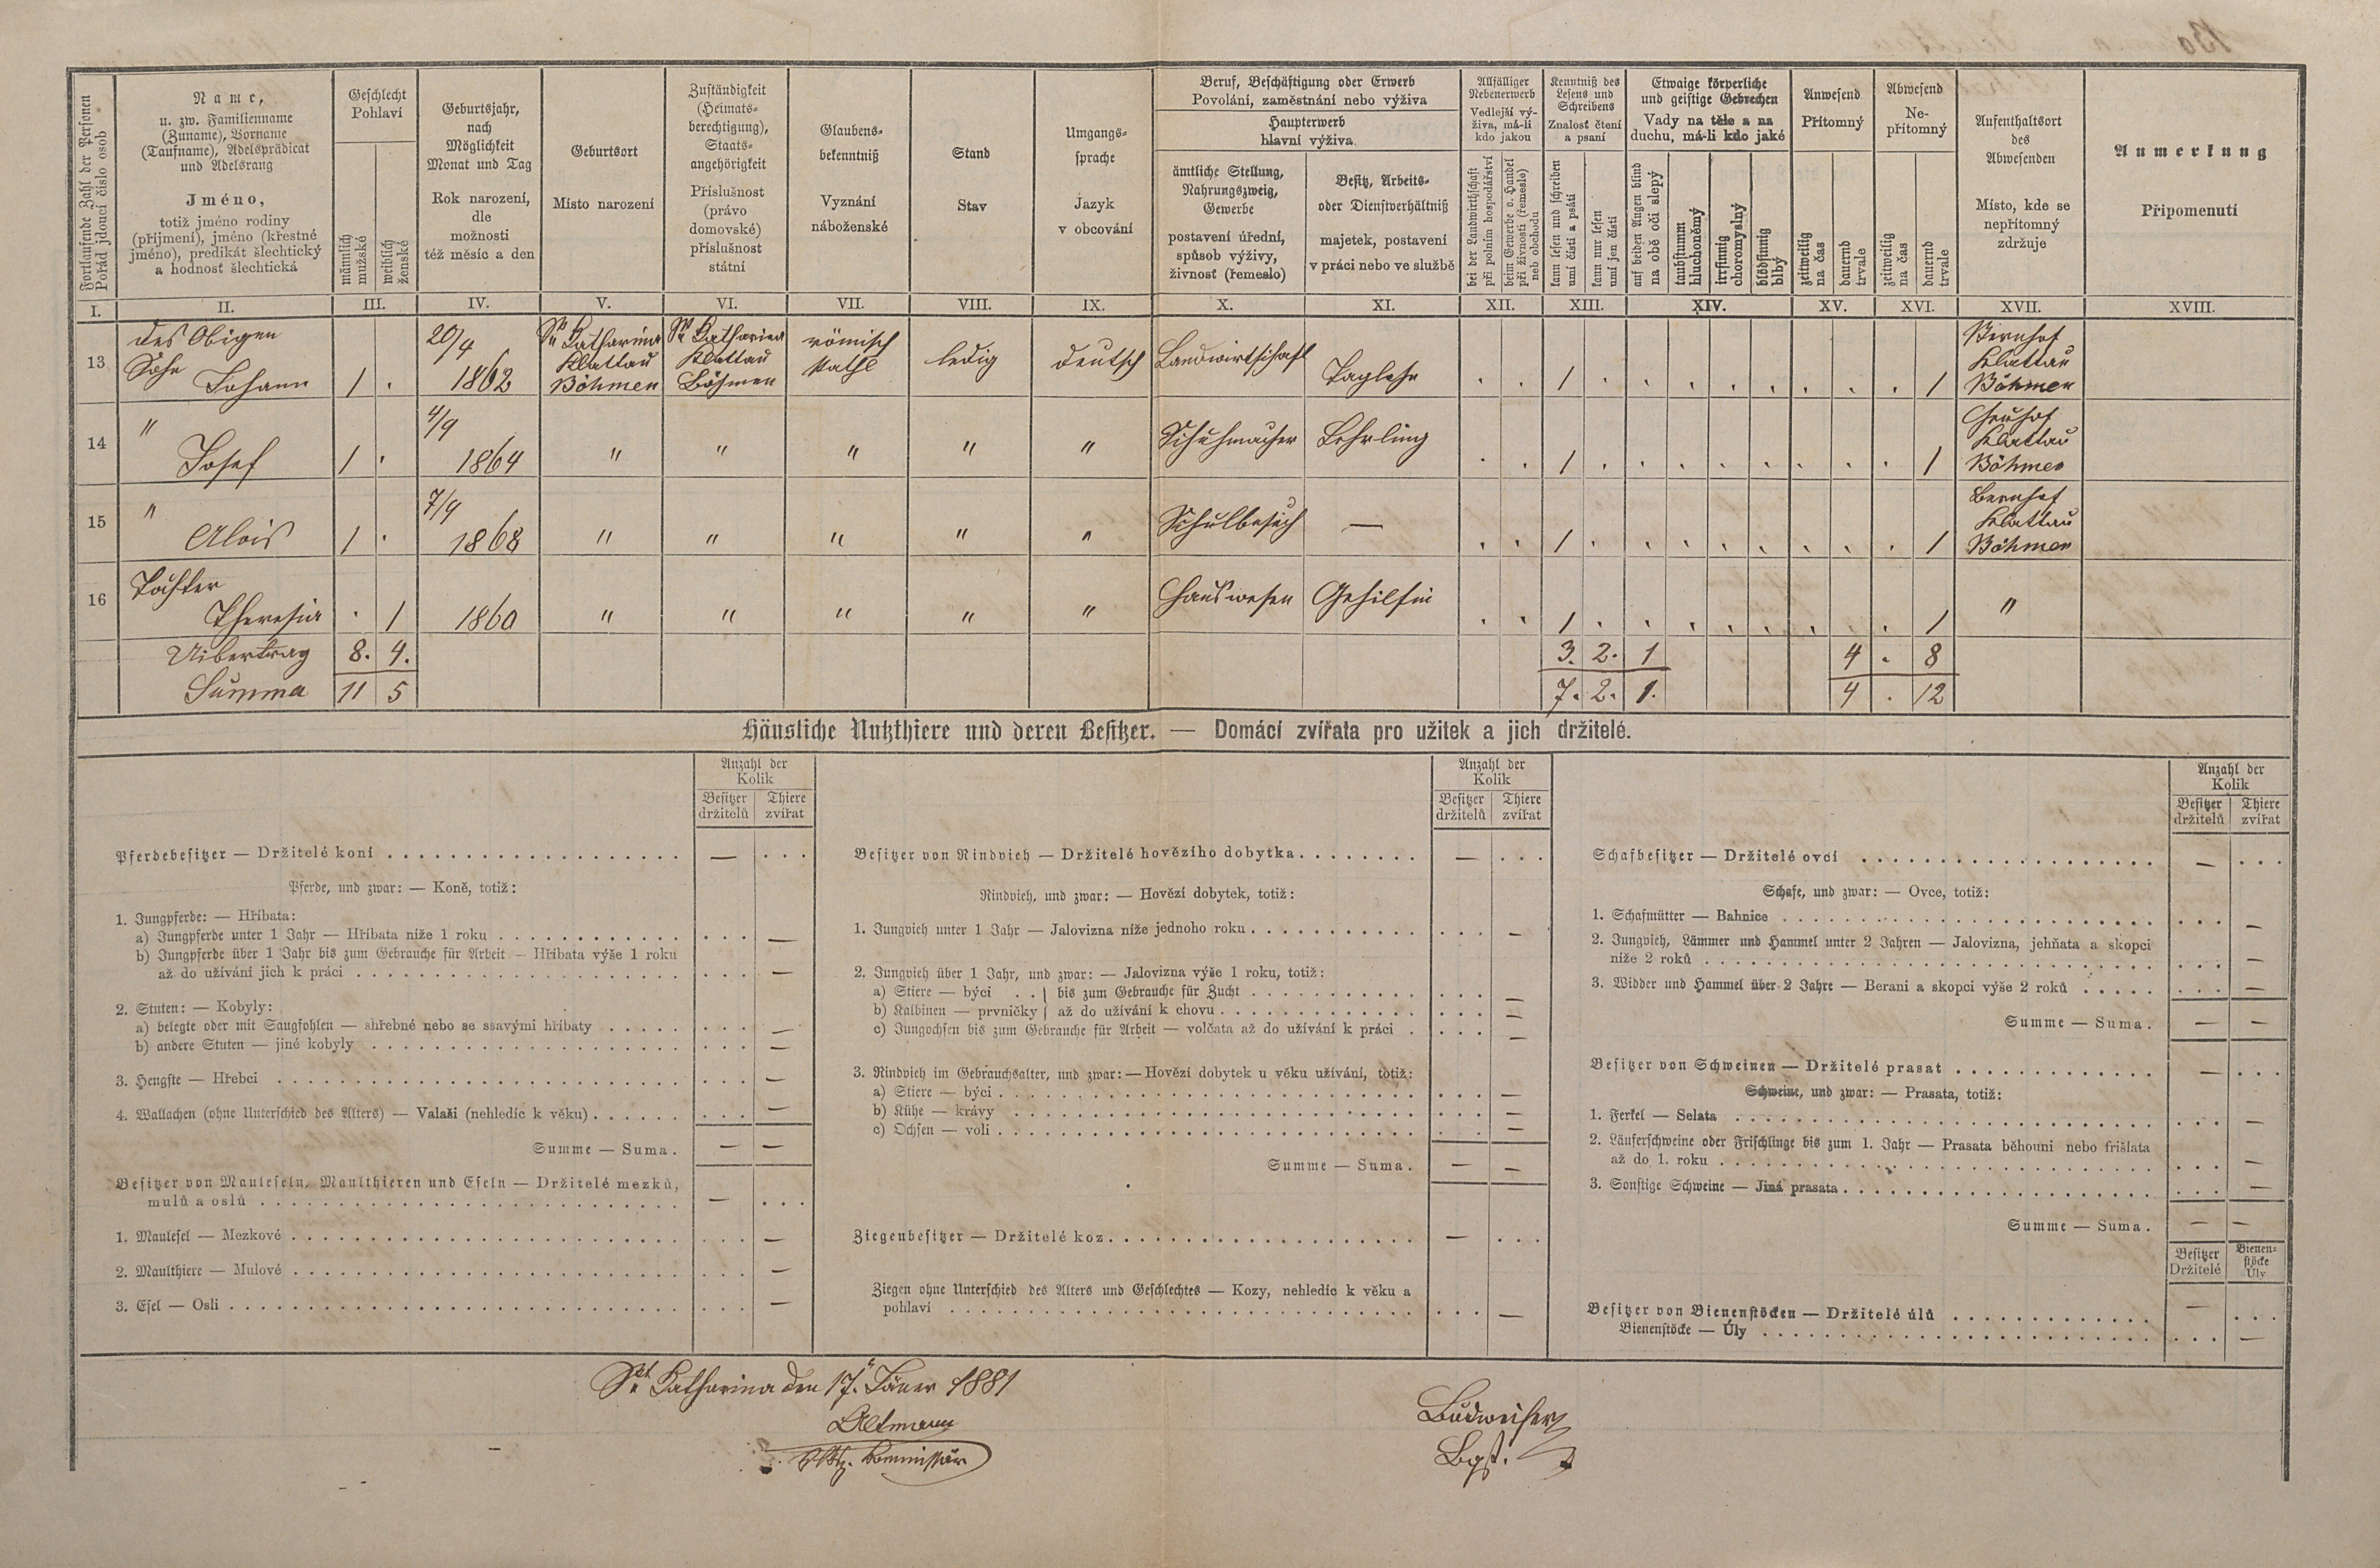 Fortlaufende Zahl der Personen
Pořád jdoucí číslo osob
Name,
u. zw. Familienname
(Zuname), Vorname
(Taufname), Adelsprädicat
und Adelsrang
Jméno,
totiž jméno rodiny
(příjmení), jméno (křestné
jméno), predikát šlechtický
a hodnost šlechtická
Geschlecht
Pohlaví
männlich
mužské
weiblich
ženské
Geburtsjahr,
nach
Möglichkeit
Monat und Tag
Rok narození,
dle
možnosti
též měsíc a den
Geburtsort
Místo narození
Zuständigkeit
(Heimats-
berechtigung),
Staats-
angehörigkeit
Příslušnost
(právo
domovské)
příslušnost
státní
Glaubens-
bekenntniß
Vyznání
náboženské
Stand
Stav
Umgangs-
sprache
Jazyk
v obcování
Beruf, Beschäftigung oder Erwerb
Povolání, zaměstnání nebo výživa
Haupterwerb
hlavní výživa.
ämtliche Stellung,
Nahrungszweig,
Gewerbe
postavení úřední,
spůsob výživy,
živnost (řemeslo)
Besitz, Arbeits-
oder Dienstverhältniß
majetek, postavení
v práci nebo ve službě
Allfälliger
Nebenerwerb
Vedlejší vý-
živa, má-li
kdo jakou
bei der Landwirthschaft
při polním hospodářství
beim Gewerbe o. Handel
při živnosti (řemesle)
neb obchodu
Kenntniß des
Lesens und
Schreibens
Znalost čtení
a psaní
kann lesen und schreiben
umí čísti a psáti
kann nur lesen
umí jen čísti
Etwaige körperliche
und geistige Gebrechen
Vady na těle a na
duchu, má-li kdo jaké
auf beiden Augen blind
na obě oči slepý
taubstumm
hluchoněmý
irrsinnig
choromyslný
blödsinnig
blbý
Anwesend
Přítomný
zeitweilig
na čas
dauernd
trvale
Abwesend
Ne-
přítomný
zeitweilig
na čas
dauernd
trvale
Aufenthaltsort
des
Abwesenden
Místo, kde se
nepřítomný
zdržuje
Anmerkung
Připomenutí
I. II. III. IV. V. VI. VII. VIII. IX. X. XI. XII. XIII. XIV. XV. XVI. XVII. XVIII.
13 des Obigen Sohn Johann 1 . 20/4 1862 St. Katharina Klattau Böhmen St. Katharina Klattau Böhmen römisch kathl ledig deutsch Landwirtschaft Taglohn . . 1 . . . . . . . . 1 Bernhof Klattau Böhmen
14 " Josef 1 . 4/9 1864 " " " " " Schuhmacher Lehrling . . 1 . . . . . . . . 1 Klattau Böhmen
15 " Alois 1 . 7/9 1868 " " " " " Schulbesuch — . . 1 . . . . . . . . 1 Bernhof Klattau Böhmen
16 Tochter Theresia . 1 1860 " " " " " Hauswesen Gehilfin . . 1 . . . . . . . . 1 "
Uibertrag 8. 4. 3. 2. 1 4 . 8
Summa 11 5 7. 2. 1. 4 . 12
Häusliche Nutzthiere und deren Besitzer. — Domácí zvířata pro užitek a jich držitelé.
Anzahl der
Kolik
Besitzer
držitelů
Thiere
zvířat
Pferdebesitzer — Držitelé koní — . . .
Pferde, und zwar: — Koně, totiž:
1. Jungpferde: — Hříbata:
a) Jungpferde unter 1 Jahr — Hříbata níže 1 roku . . . —
b) Jungpferde über 1 Jahr bis zum Gebrauche für Arbeit — Hříbata výše 1 roku
až do užívání jich k práci . . . —
2. Stuten: — Kobyly:
a) belegte oder mit Saugfohlen — shřebné nebo se ssavými hříbaty . . . —
b) andere Stuten — jiné kobyly . . . —
3. Hengste — Hřebci . . . —
4. Wallachen (ohne Unterschied des Alters) — Valaši (nehledíc k věku) . . . —
Summe — Suma. — —
Besitzer von Mauleseln, Maulthieren und Eseln — Držitelé mezků,
mulů a oslů — . . .
1. Maulesel — Mezkové . . . —
2. Maulthiere — Mulové . . . —
3. Esel — Osli . . . —
Anzahl der
Kolik
Besitzer
držitelů
Thiere
zvířat
Besitzer von Rindvieh — Držitelé hovězího dobytka — . . .
Rindvieh, und zwar: — Hovězí dobytek, totiž:
1. Jungvieh unter 1 Jahr — Jalovizna níže jednoho roku . . . —
2. Jungvieh über 1 Jahr, und zwar: — Jalovizna výše 1 roku, totiž:
a) Stiere — býci . . } bis zum Gebrauche für Zucht . . . —
b) Kalbinen — prvničky } až do užívání k chovu . . . —
c) Jungochsen bis zum Gebrauche für Arbeit — volčata až do užívání k práci . . . —
3. Rindvieh im Gebrauchsalter, und zwar: — Hovězí dobytek u věku užívání, totiž:
a) Stiere — býci . . . —
b) Kühe — krávy . . . —
c) Ochsen — voli . . . —
Summe — Suma. — —
Ziegenbesitzer — Držitelé koz — . . .
Ziegen ohne Unterschied des Alters und Geschlechtes — Kozy, nehledíc k věku a
pohlaví . . . —
Anzahl der
Kolik
Besitzer
držitelů
Thiere
zvířat
Schafbesitzer — Držitelé ovcí — . . .
Schafe, und zwar: — Ovce, totiž:
1. Schafmütter — Bahnice . . . —
2. Jungvieh, Lämmer und Hammel unter 2 Jahren — Jalovizna, jehňata a skopci
níže 2 roků . . . —
3. Widder und Hammel über 2 Jahre — Berani a skopci výše 2 roků . . . —
Summe — Suma. — —
Besitzer von Schweinen — Držitelé prasat — . . .
Schweine, und zwar: — Prasata, totiž:
1. Ferkel — Selata . . . —
2. Läuferschweine oder Frischlinge bis zum 1. Jahr — Prasata běhouni nebo frišlata
až do 1. roku . . . —
3. Sonstige Schweine — Jiná prasata . . . —
Summe — Suma. — —
Besitzer
Držitelé
Bienen-
stöcke
Úly
Besitzer von Bienenstöcken — Držitelé úlů — . . .
Bienenstöcke — Úly . . . —
St. Katharina den 17. Jäner 1881
Altmann
Kommissär
Budweiser
Bgst.